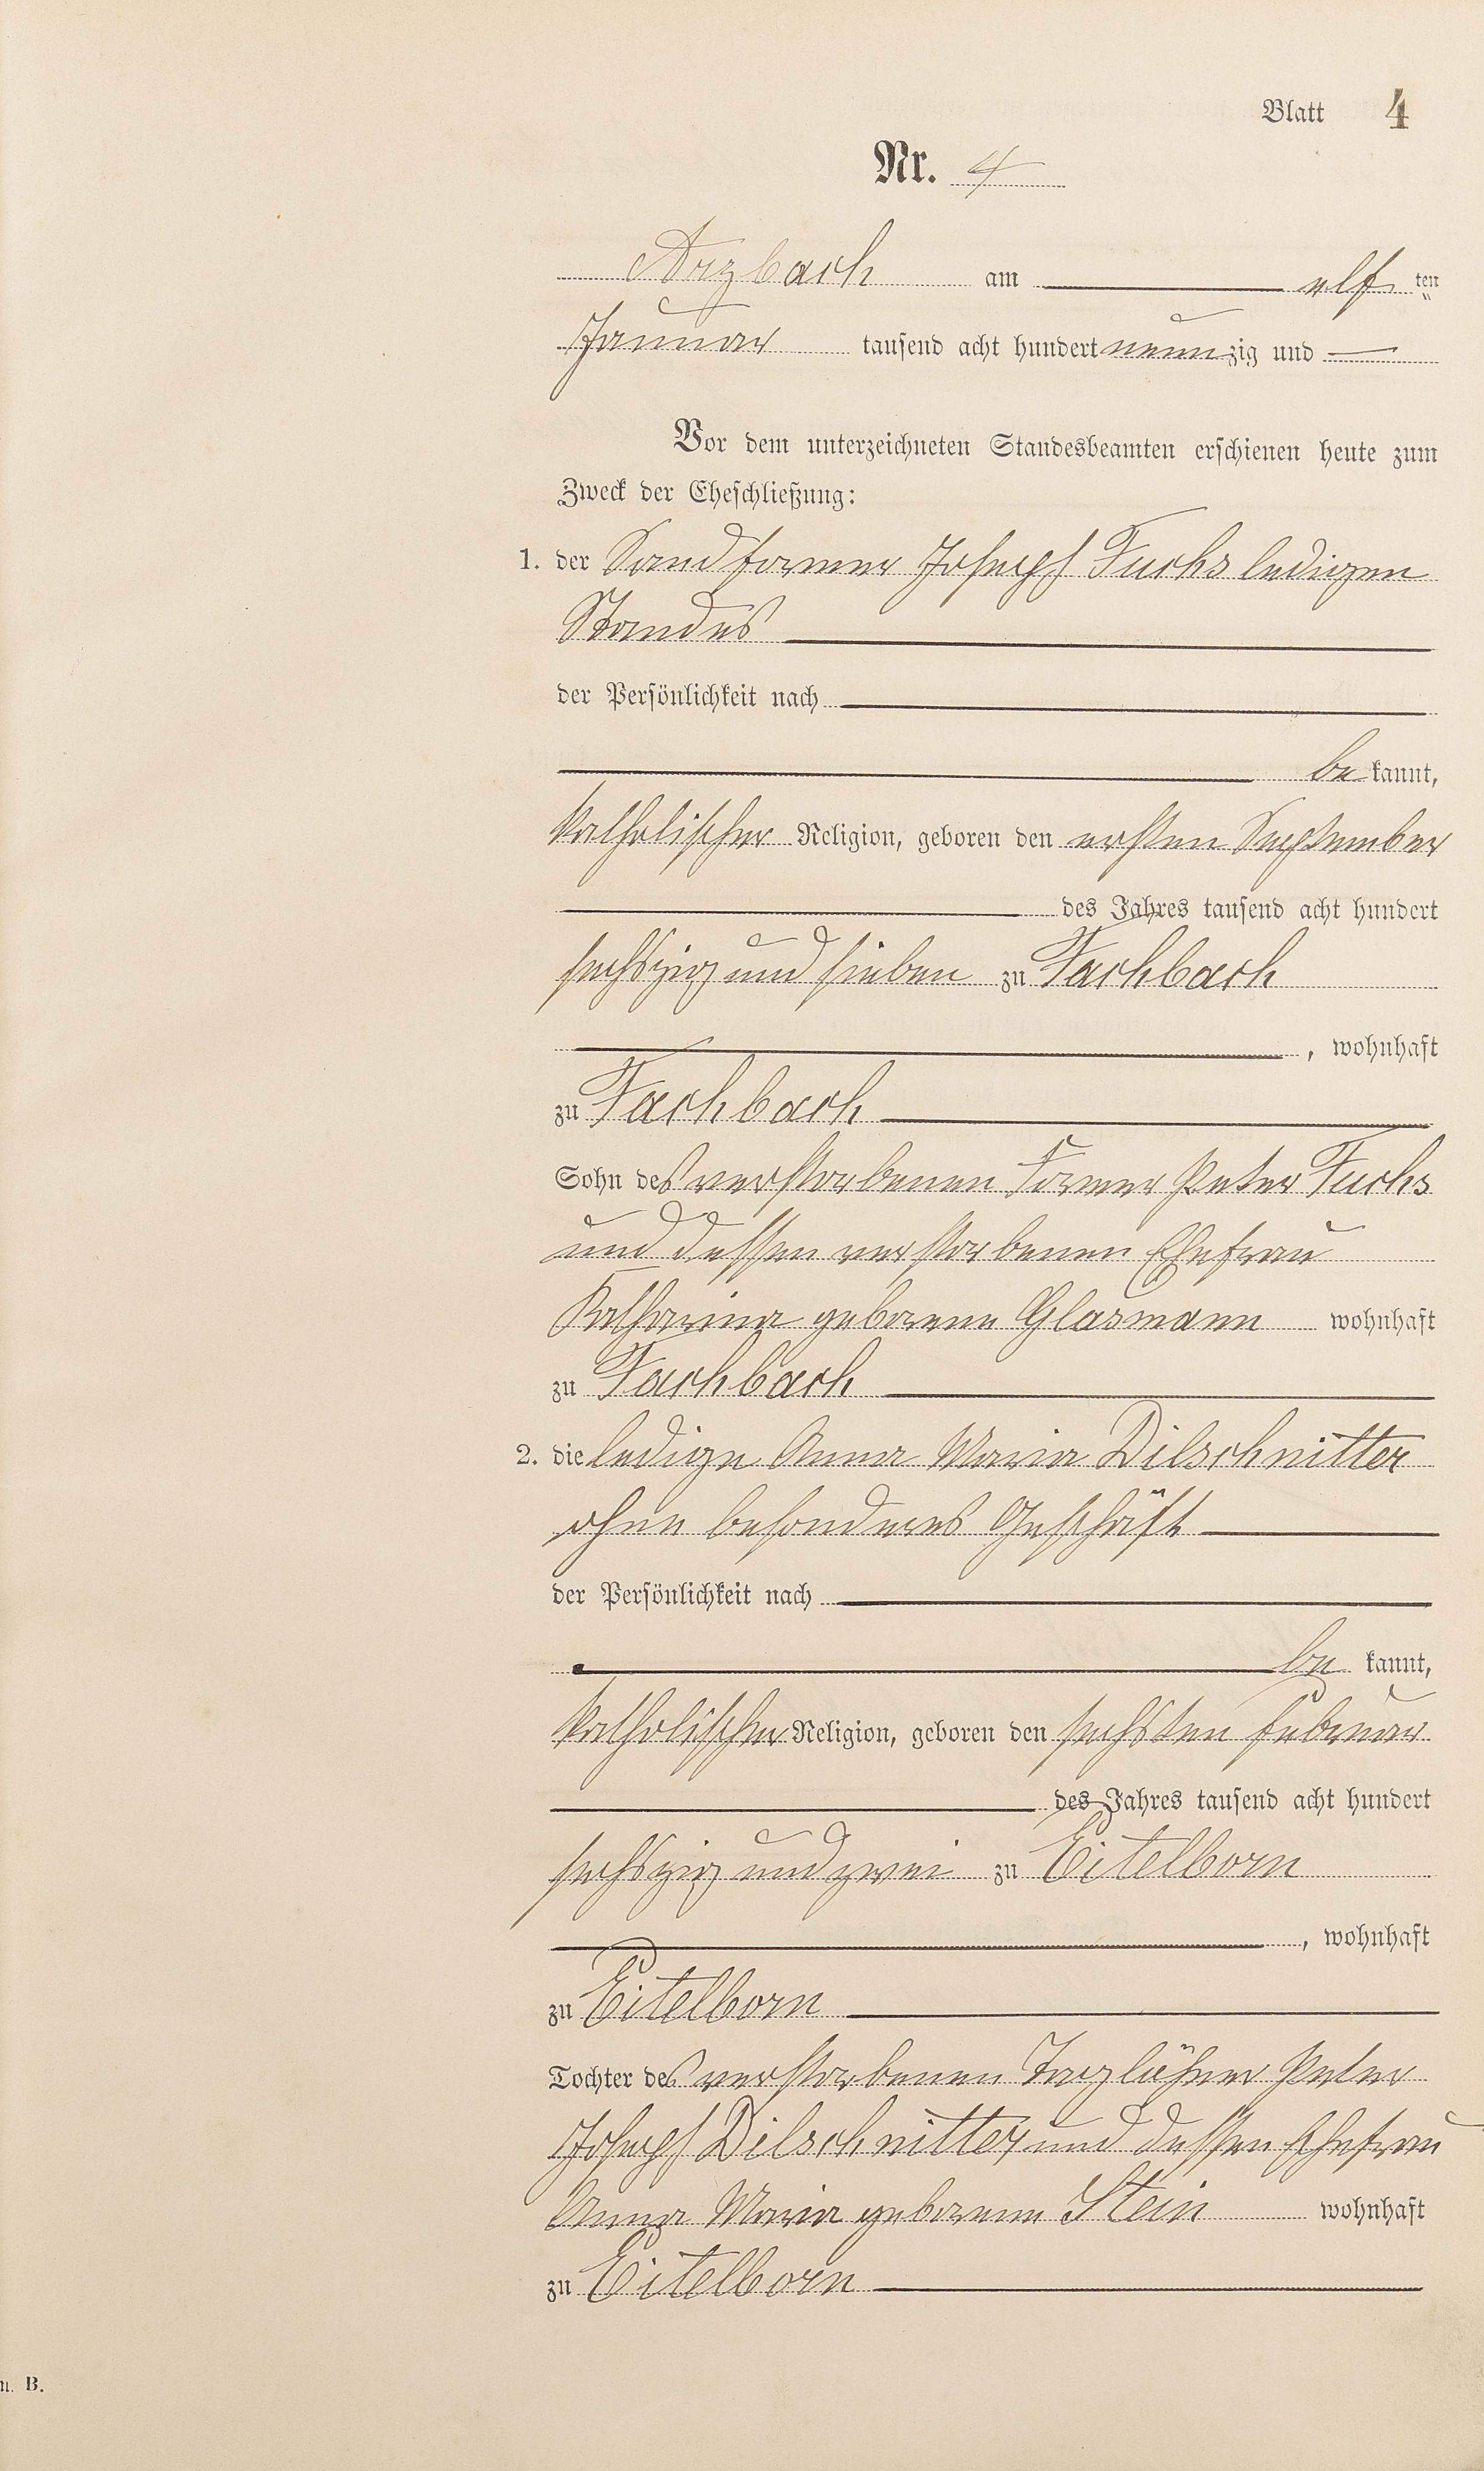 Blatt 4
Nr. 4
Arzbach am elf ten
Januar tausend acht hundert neunzig und —
Vor dem unterzeichneten Standesbeamten erschienen heute zum
Zweck der Eheschließung:
1. der Sandformer Joseph Fuchs ledigen
Standes
der Persönlichkeit nach
be kannt,
katholischer Religion, geboren den ersten September
des Jahres tausend acht hundert
sechszig und sieben zu Fachbach
, wohnhaft
zu Fachbach
Sohn des verstorbenen Former Peter Fuchs
und dessen verstorbenen Ehefrau
Katharina geborene Glasmann wohnhaft
zu Fachbach
2. die ledige Anna Maria Dilschnitter
ohne besonderes Geschäft
der Persönlichkeit nach
be kannt,
katholischer Religion, geboren den sechsten Februar
des Jahres tausend acht hundert
sechszig und zwei zu Eitelborn
, wohnhaft
zu Eitelborn
Tochter des verstorbenen Taglöhner Peter
Joseph Dilschnitter und dessen Ehefrau
Anna Maria geborene Stein wohnhaft
zu Eitelborn
n. B.